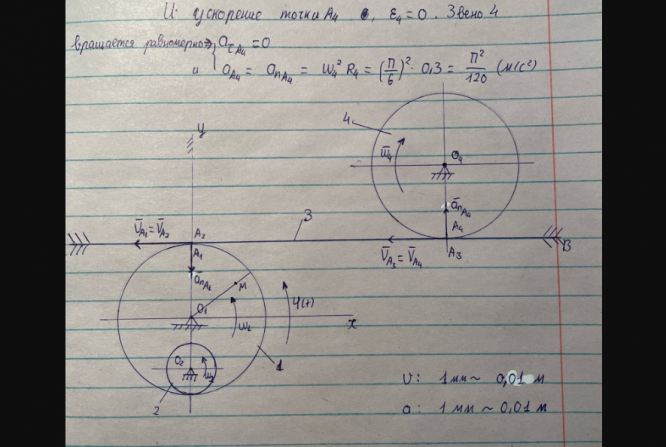 И: ускорение точки A₄ , ε₄ = 0. Звено 4
вращается равномерно ⇒ { a_τA₄ = 0
и a_A₄ = a_nA₄ = ω₄² R₄ = (π/6)² · 0,3 = π²/120 (м/с²)
y
4
ω̄₄
O₄
ā_nA₄
V̄_A₁ = V̄_A₂
A₂
3
A₄
B
A₁
V̄_A₃ = V̄_A₄
A₃
ā_nA₁
M
O₁
φ(t)
ω₁
x
O₂
1
2
υ: 1 мм ~ 0,01 м
a: 1 мм ~ 0,01 м